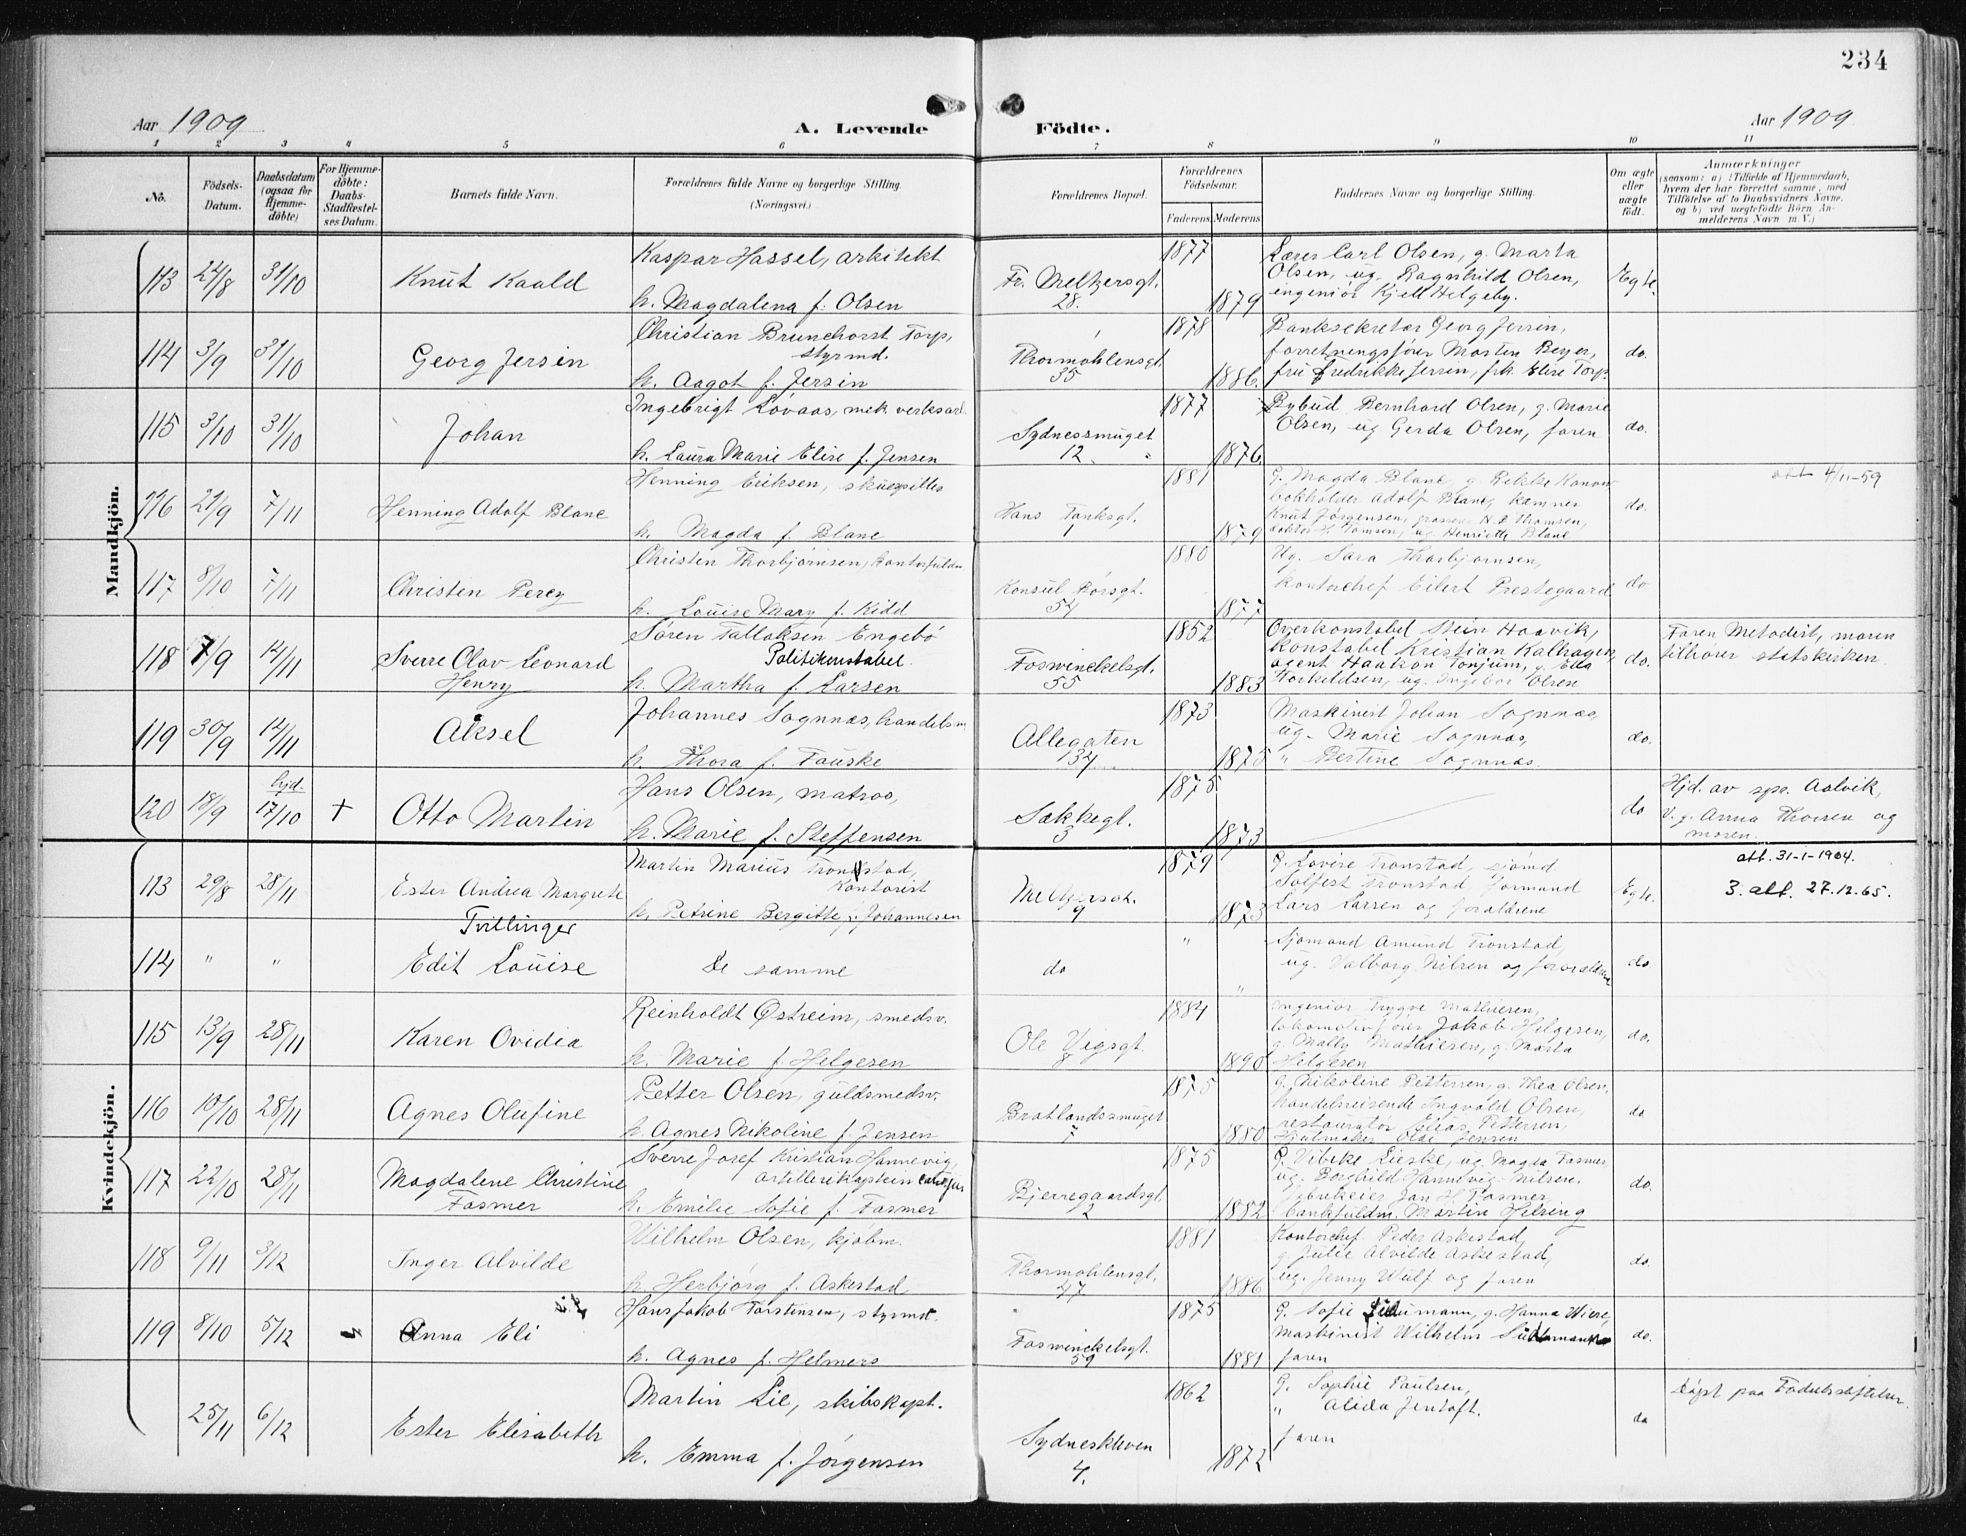 234
Aar 1909
A. Levende
Födte.
Aar 1909
1 2 3 4 5 6 7 8 9 10 11
No.
Födsels-
Datum.
Daabsdatum
(ogsaa for
Hjemme-
döbte)
For Hjemme-
döbte:
Daabs-
Stadfæstel-
ses Datum.
Barnets fulde Navn.
Forældrenes fulde Navne og borgerlige Stilling.
(Næringsvei.)
Forældrenes Bopæl.
Forældrenes
Födselsaar.
Faderens Moderens
Faddernes Navne og borgerlige Stilling.
Om ægte
eller
uægte
födt.
Anmærkninger
(saasom: a) i Tilfælde af Hjemmedaab,
hvem der har forrettet samme, med
Tilföielse af to Daabsvidners Navne,
og b) ved uægtefödte Börn An-
melderens Navn m. V.)
Mandkjön.
113 24/8 31/10 Knut Kaald
Kaspar Hassel, arkitekt
h. Magdalena f. Olsen
Fr. Meltzersgt.
28.
1877
1879
Lærer Carl Olsen, g. Marta
Olsen, ug. Ragnhild Olsen,
ingeniör Kjell Helgeby.
Egte.
114 3/9 31/10 Georg Jersin
Christian Brunchorst Torp,
styrmd.
h. Aagot f. Jersin
Thormohlensgt.
35
1878
1886.
Banksekretær Georg Jersin,
forretningsförer Morten Beyer,
fru Fredrikke Jersin, frk Elise Torp.
do.
115 3/10 31/10 Johan
Ingebrigt Lövaas, mek verksarb.
h. Laura Marie Elise f. Jensen
Sydnessmuget
12.
1877
1876.
Bybud Bernhard Olsen, g. Marie
Olsen, ug Gerda Olsen, faren
do.
116 21/9 7/11 Henning Adolf Blanc
Henning Eriksen, skuespiller
h. Magda f. Blanc
Hans Tanksgt.
1
1881
1879
g. Magda Blanc, g Rikke Kanow
bokholder Adolf Blanc, kæmner
Knut Jörgensen, H. Thomsen,
Tomsen, ug Henriette Blanc
do.
att 4/11-59
117 8/10 7/11 Christen Percy
Christen Thorbjörnsen, kontorfuldm
h. Louise Mary f. Kidd
Konsul Börsgt.
54
1880
1877
Ug. Sara Thorbjornsen,
kontorchef Eilert Prestegaard
do
118 7/9 14/11 Sverre Olav Leonard
Henry
Sören Tallaksen Engebö
Politikonstabel.
h. Martha f. Larsen
Foswinckelsgt.
55
1852
1883
Overkonstabel Stein Haavik,
Konstabel Kristian Kalhagen,
agent Haakon Tonjum, g. Ella
Torkildsen, ug. Ingebor Olsen
do.
Faren Metodist, moren
tilhörer statskirken.
119 30/9 14/11 Aksel
Johannes Sognnæs, handelsm
h. Thora f. Fauske
Allegaten
134
1873
1875
Maskinist Johan Sognnæs,
ug. Marie Sognnæs,
" Bertine Sognnæs.
do.
120 18/9 hjd. 17/10 + Otto Martin
Hans Olsen, matros,
h. Marie f. Steffensen
Sækkegt.
3
1875
1873
do
Hjd. av spr. Aalvik,
V. g. Anna Thoresen og
moren.
Kvindekjön.
113 29/8 28/11 Ester Andrea Margrete
Martin Marius Tronstad,
Kontorist
h. Petrine Bergitte f. Johannesen
Meltzersgt.
9
1879
1873
G. Lovise Tronstad, sjömd
Solfest Tronstad, formand
Lars Larsen og forældrene
Egte.
att. 31-1-1904.
3. att. 27.12.65.
Tvillinger
114 " " Edit Louise
De samme
do
"
"
Sjömand Amund Tronstad,
ug. Valborg Nilsen og forældrene
do
115 13/9 28/11 Karen Ovidia
Reinholdt Østreim, smedsv.
h. Marie f. Helgesen
Ole Vigsgt.
8
1884
1890
Ingeniör Trygve Mathiesen,
lokomotivförer Jakob Helgesen,
g. Mally Mathiesen, g. Marta
Helgesen
do.
116 10/10 28/11 Agnes Olufine
Petter Olsen, guldsmedsv.
h. Agnes Nikoline f. Jensen
Bratlandssmuget
7
1875
1880
g. Nikoline Pettersen, g. Thea Olsen,
handelsreisende Ingvald Olsen,
restauratør Elias Pettersen,
Hjulmaker Olai Jensen
do
117 22/10 28/11 Magdalene Christine
Fasmer
Sverre Josef Kristian Hannevig
artillerikaptein
h. Emilie Sofie f. Fasmer
Bjerregaardsgt.
2
1875
1882
G. Vibeke Lieske, ug. Magda Fasmer
ug. Borghild Hannevig-Nilsen.
Jan H. Fasmer,
bankfuldm. Martin Helsing
do.
118 9/11 3/12 Inger Alvilde
Wilhelm Olsen, kjöbm.
h. Herbjörg f. Askestad
Thormohlensgt.
47
1881
1886
Kontorchef Peder Askestad
g. Julie Alvilde Askestad,
ug. Jenny Wulf og faren
do.
119 8/10 5/12 Anna Eli
Hans Jakob Torstensen, styrmd.
h. Agnes f. Helmers
Foswinckelsgt.
59
1875
1881
G. Sofie g. Hanna Wiese,
Maskinist Wilhelm
faren
do.
25/11 6/12 Ester Elisabeth
Martin Lie, skibskapt.
h. Emma f. Jörgensen
Sydneskleven
4.
1862
1872
G. Sophie Paulsen,
" Alida Jentoft.
faren
do
Döpt paa Födselsstiftelsen.